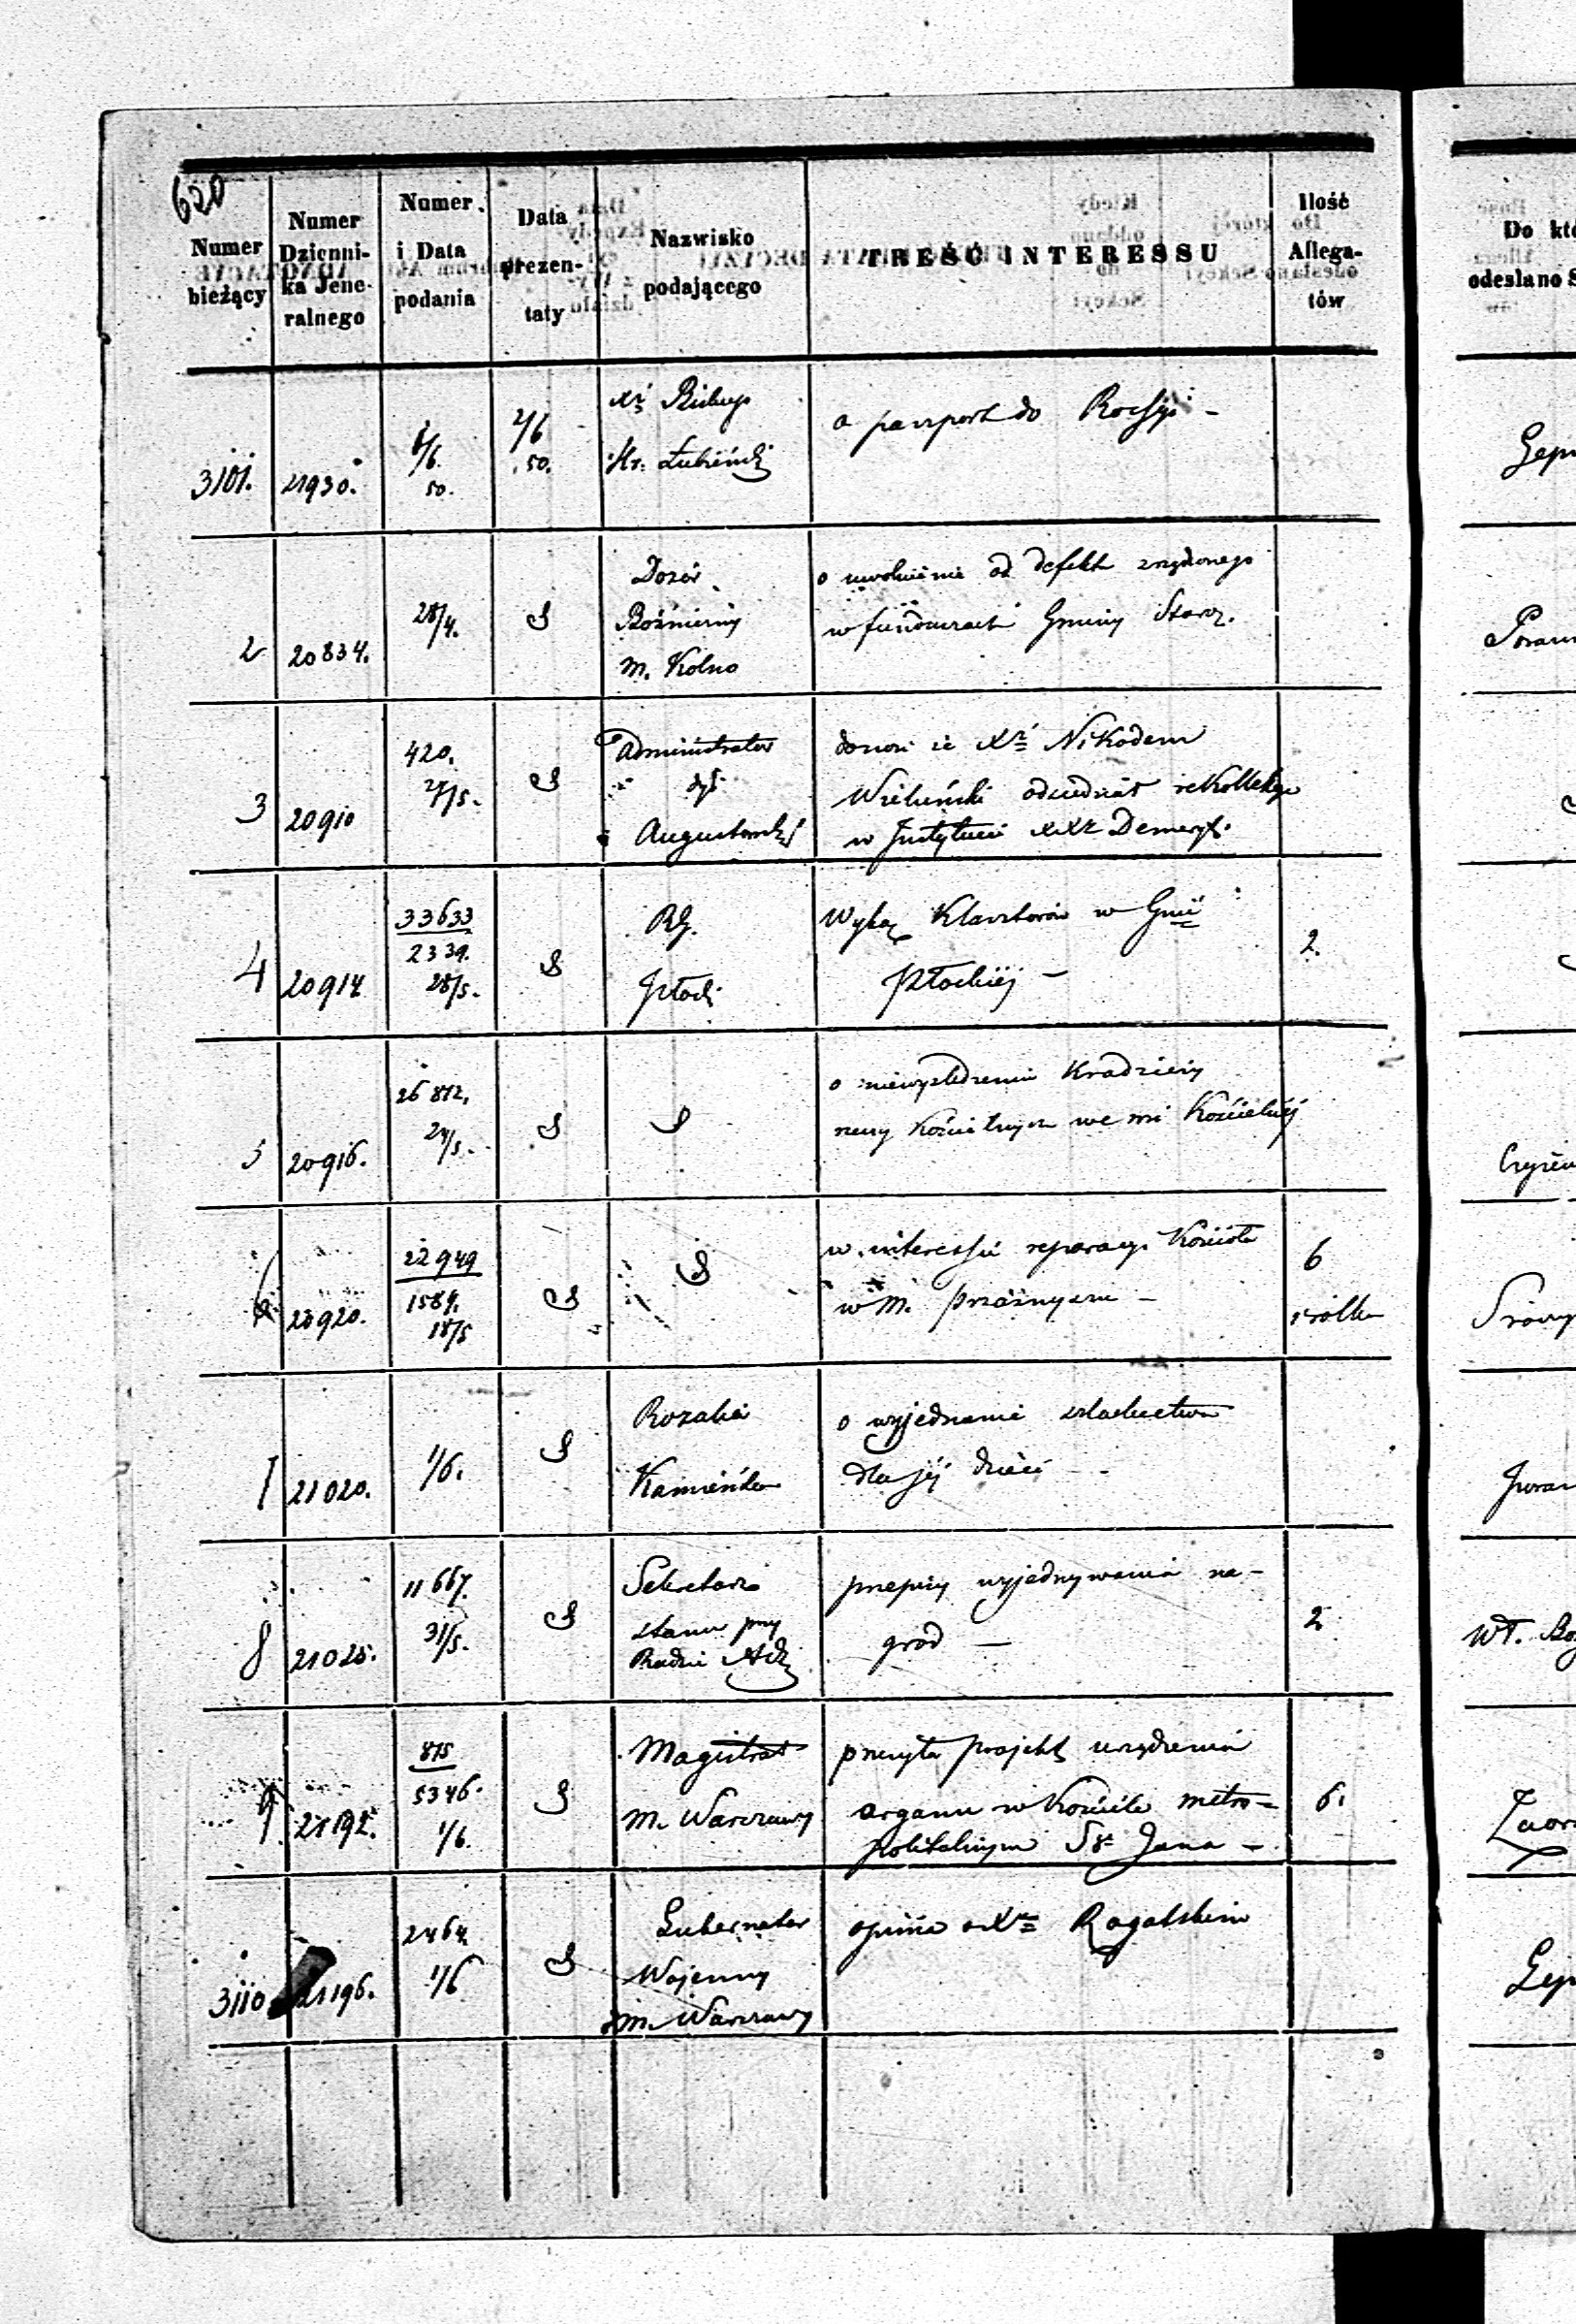 620
Numer bieżący
Numer Dzienni-ka Jene-ralnego
Numer i Data podania
Data prezen-taty
Nazwisko podającego
TREŚĆ INTERESSU
Ilość Allega-tów
Do któ
odesłano S
3101. 21930. 1/6. 50. 2/6 50. Xz Biskup
Hr. Łubieński
o paszport do Rossyi -
2 20834. 28/4. Dozór
Bóżniczy
m. Kolno
o uwolnienie od defektu
w funduszach Gminy Staroz.
3 20910 420. 27/5. Administrator
dyś.
Augustowskiej
donosi że Xz Nikodem
odsiedział rekollekcye
w Instytucie XXz Demeryt.
4 20914 33633
2339.
28/5. RG.
Płocki
Wykaz Klasztorów w Gnii
Płockiej - 2.
5 20916. 26872. 24/5.
o niewyśledzeniu Kradzieży
rzeczy Kościelnych we wsi Kościelnej
6 20920. 22949
1584.
18/5
w interessie reparacyi Kościoła
w m. Przasnyszu - 6
1 rolka
7 21020. 1/6. Rozalia
Kamieńska
o wyjednanie szlachectwa
dla jej dzieci -
8 21025. 11667. 31/5. Sekretarz
stanu przy
Radzie Adz
przepisy wyjednywania na-
gród - 2
9 21192. 875
5346.
1/6. Magistrat
m. Warszawy
przesyła projekt urządzenia
organu w Kościele metro-
politalnym Sgo Jana - 6.
3110 21196. 2464 1/6 Gubernator
Wojenny
m. Warszawy
opinia o Xzu Rogalskim